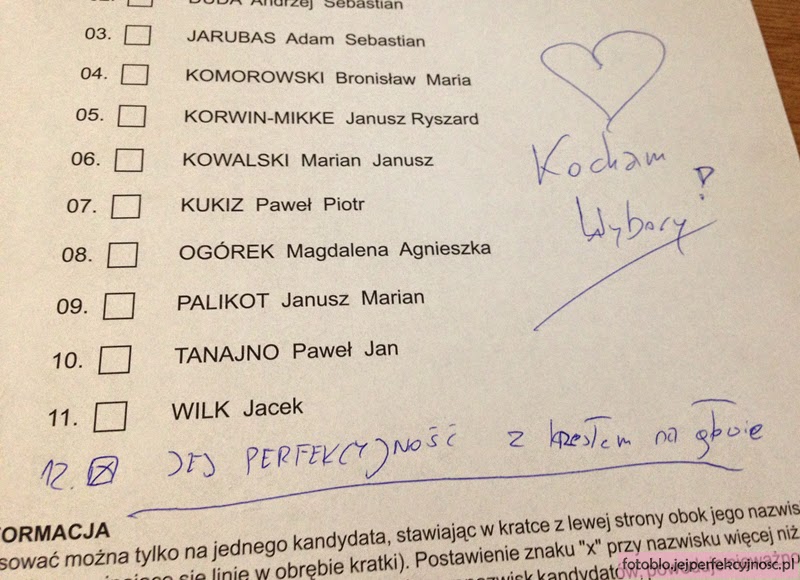 02. DUDA Andrzej Sebastian
03. JARUBAS Adam Sebastian
04. KOMOROWSKI Bronisław Maria
05. KORWIN-MIKKE Janusz Ryszard
06. KOWALSKI Marian Janusz
07. KUKIZ Paweł Piotr
08. OGÓREK Magdalena Agnieszka
09. PALIKOT Janusz Marian
10. TANAJNO Paweł Jan
11. WILK Jacek
Kocham
Wybory!
12. JEJ PERFEKCYJNOŚĆ z krzesłem na głowie
FORMACJA
sować można tylko na jednego kandydata, stawiając w kratce z lewej strony obok jego nazwis
się linie w obrębie kratki). Postawienie znaku "x" przy nazwisku więcej niż
nazwisk kandydatów,
fotoblo.jejperfekcyjnosc.pl